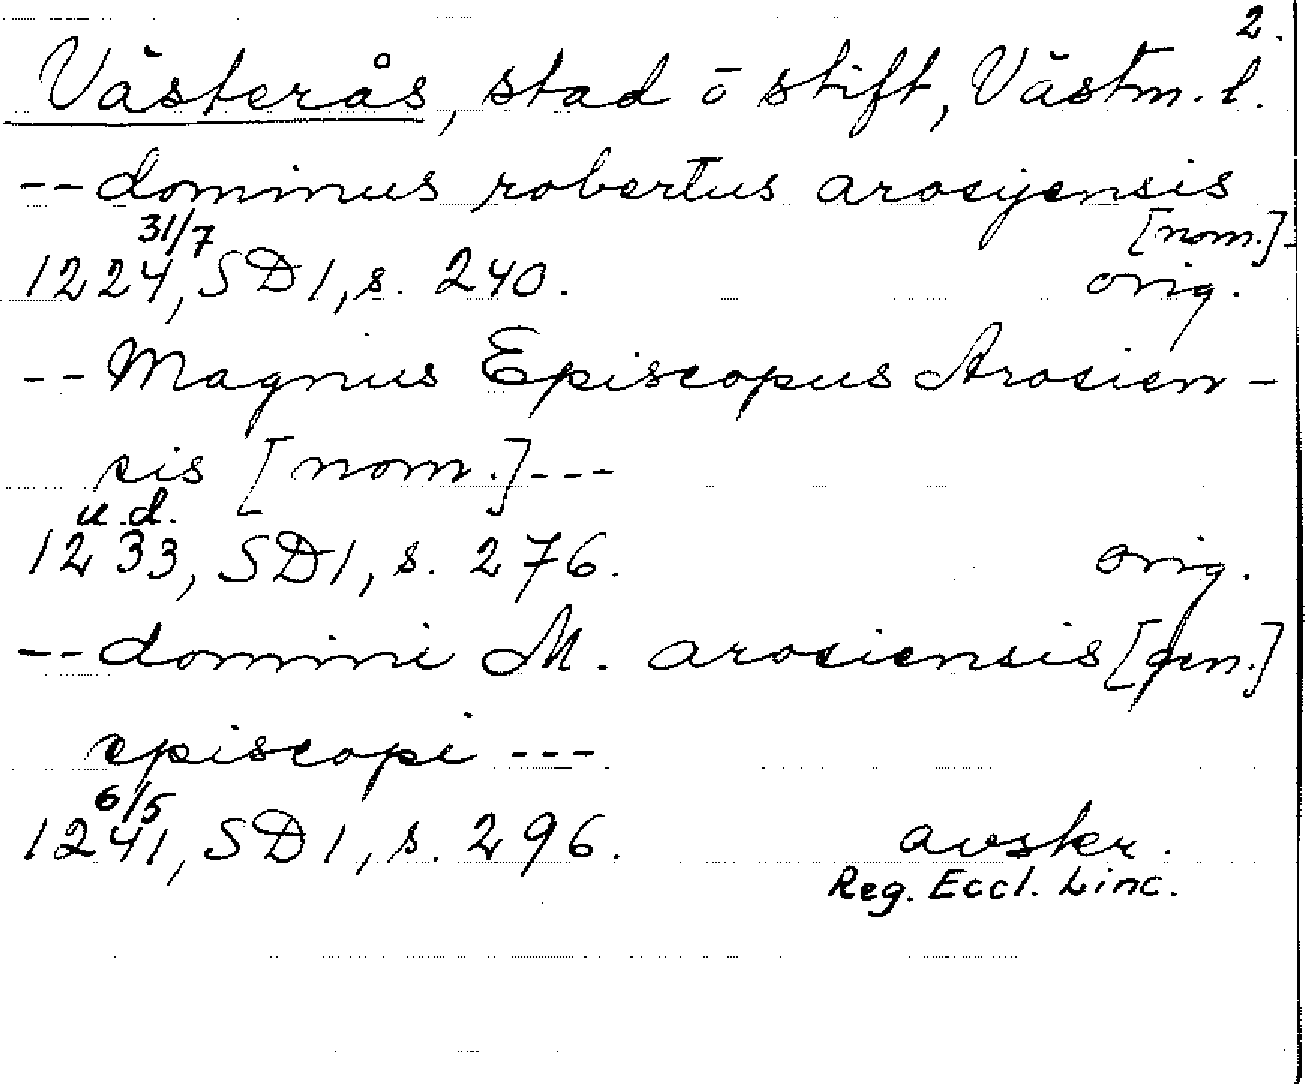 2.
Västerås, stad o stift, Västm. l.
-- dominus robertus arosyensis
[nom.] -
31/7
1224, SD 1, s. 240. orig.
-- Magnus Episcopus Arosien-
sis [nom.] ---
u.d.
1233, SD 1, s. 276. orig.
-- domini M. arosiensis [gen.]
episcopi ---
6/5
1241, SD 1, s. 296. avskr.
Reg. Eccl. Linc.